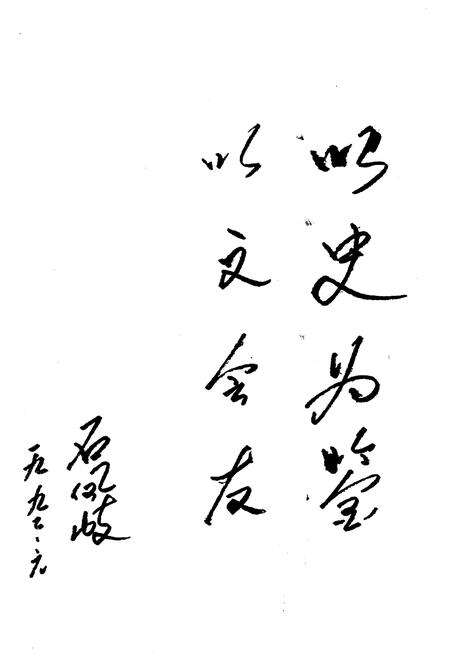 以史为鉴
以文会友
石风岐
一九九二·六